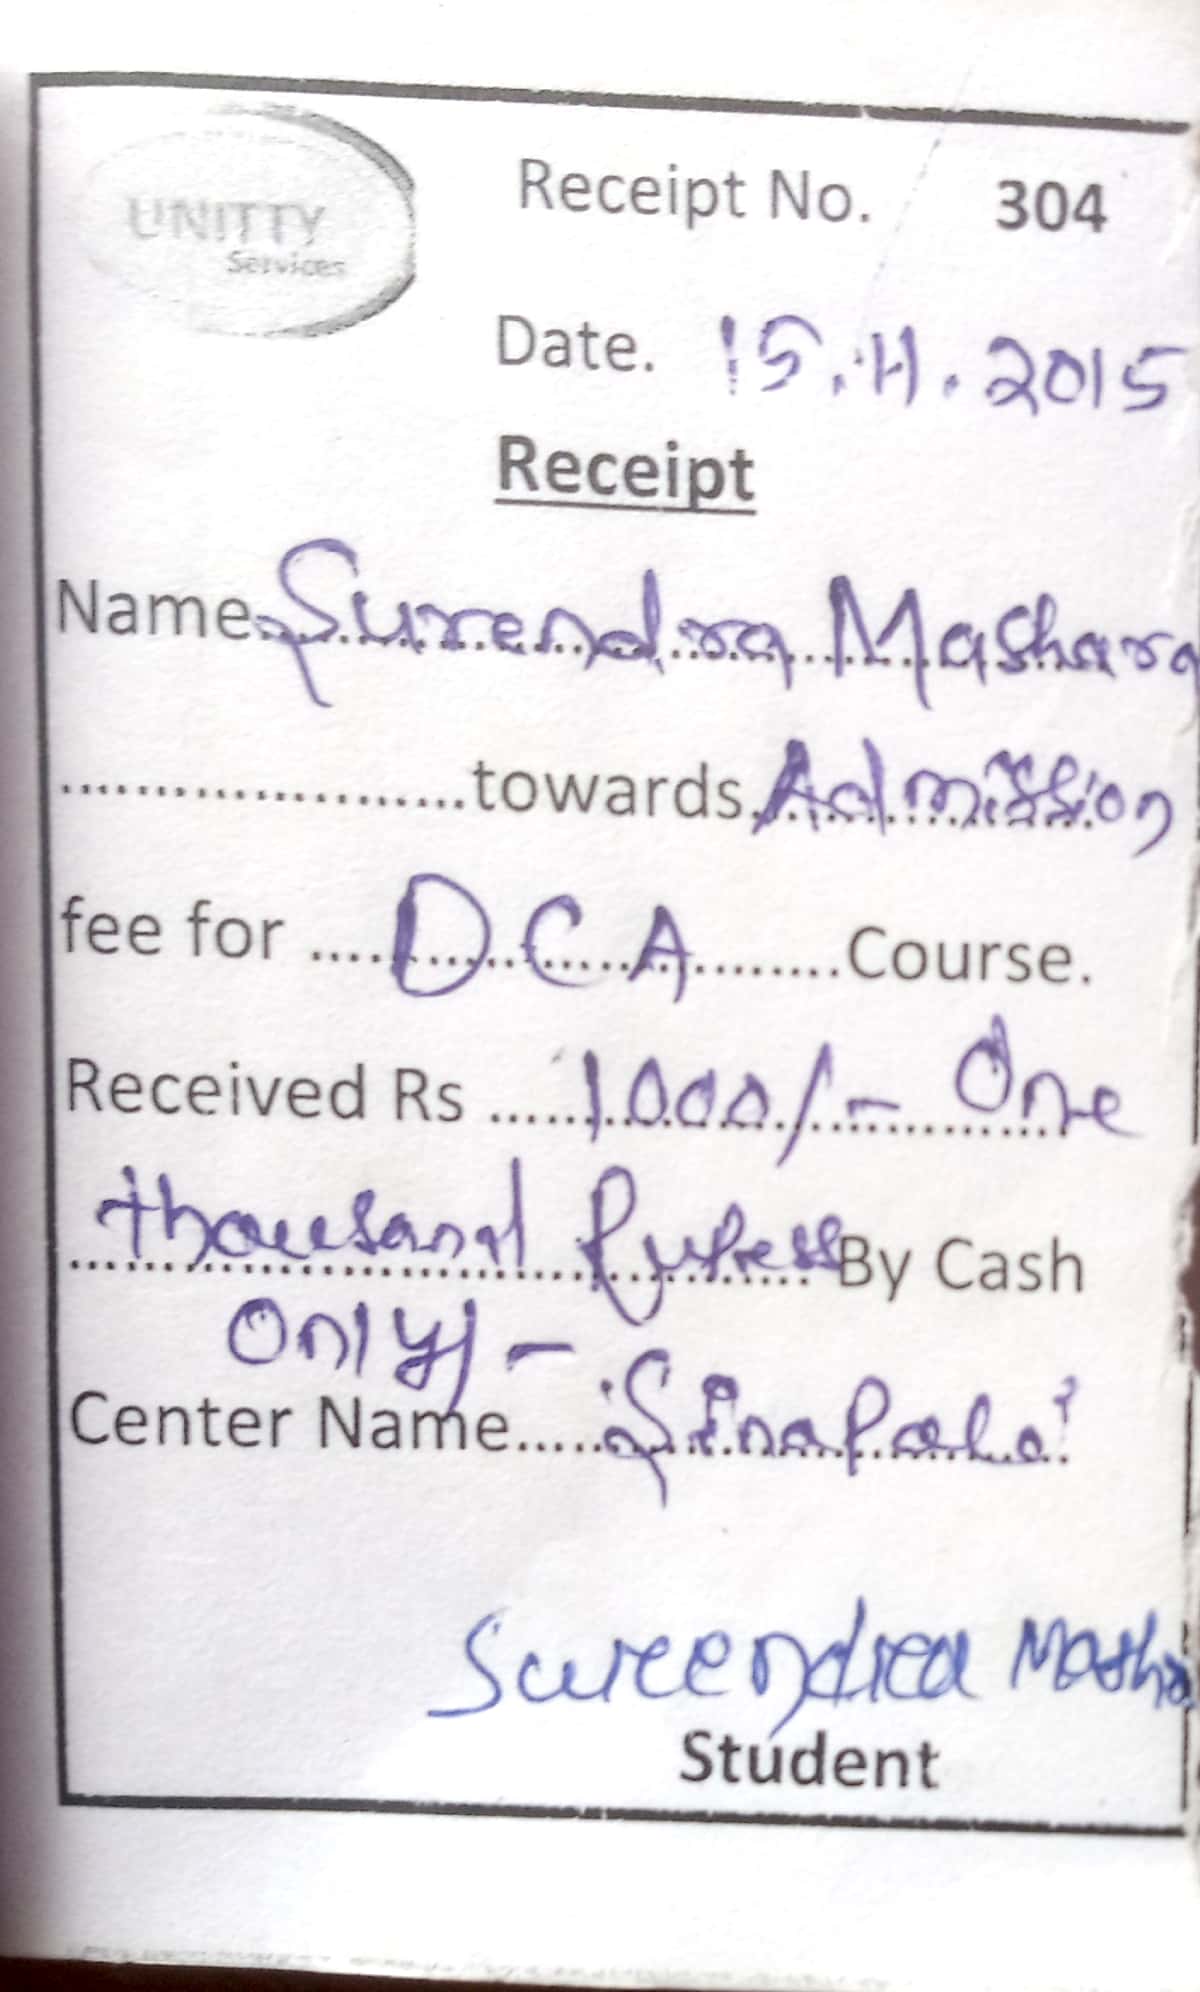 UNITTY
Services
Receipt No. 304
Date. 15.11.2015
Receipt
Name Surendra Mashara
....................towards Admission
fee for ....D.C.A.........Course.
Received Rs .....1000/- One
thousand Rupess By Cash
only/-
Center Name..... Sinapali
Surendra Masha
Student